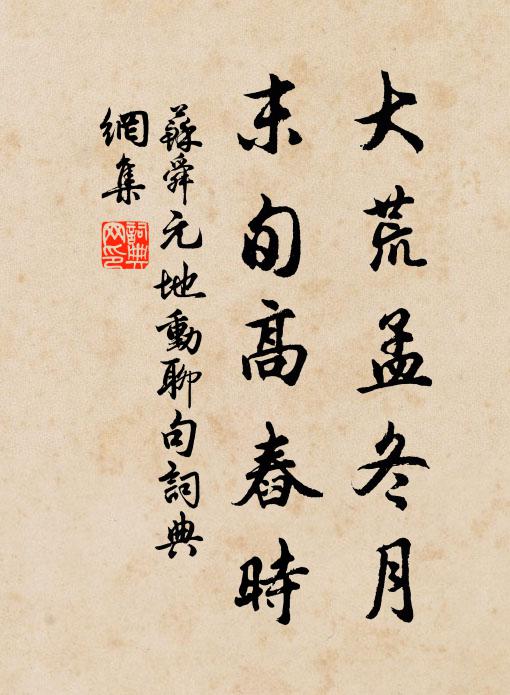 大荒孟冬月
末旬高舂時
蘇舜元地動聊句詞典
網集
詞典網印